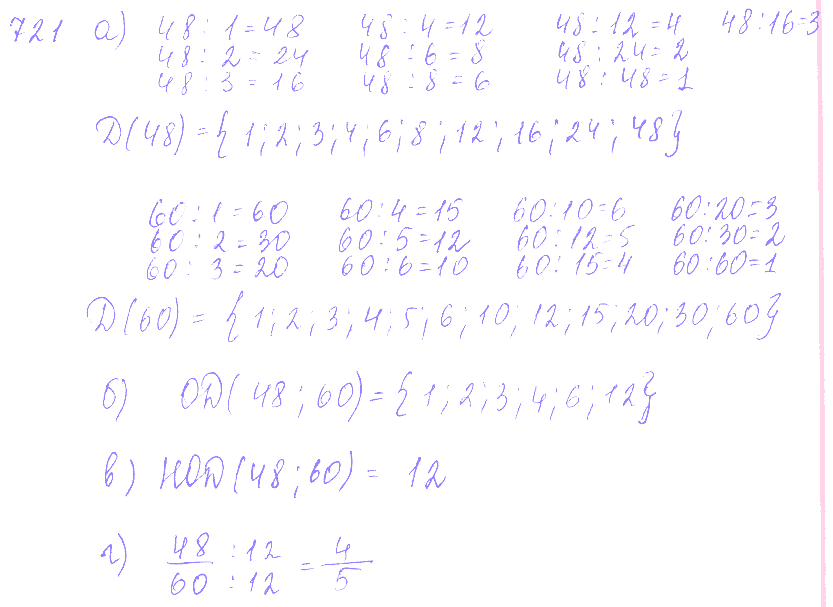 721 а) 48 : 1 = 48 48 : 4 = 12 48 : 12 = 4 48 : 16 = 3
48 : 2 = 24 48 : 6 = 8 48 : 24 = 2
48 : 3 = 16 48 : 8 = 6 48 : 48 = 1
Д(48) = {1; 2; 3; 4; 6; 8; 12; 16; 24; 48}
60 : 1 = 60 60 : 4 = 15 60 : 10 = 6 60 : 20 = 3
60 : 2 = 30 60 : 5 = 12 60 : 12 = 5 60 : 30 = 2
60 : 3 = 20 60 : 6 = 10 60 : 15 = 4 60 : 60 = 1
Д(60) = {1; 2; 3; 4; 5; 6; 10; 12; 15; 20; 30; 60}
б) ОД(48; 60) = {1; 2; 3; 4; 6; 12}
в) НОД(48; 60) = 12
г) 48 : 12 / 60 : 12 = 4/5